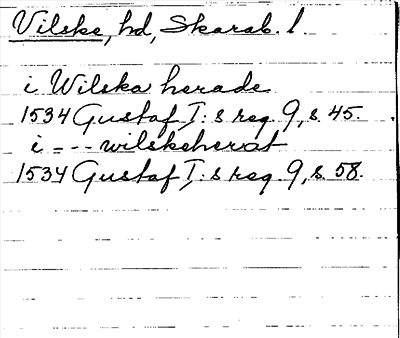 Vilske, hd, Skarab. l.
i Wilska herade
1534 Gustaf I:s reg. 9, s. 45.
i = - - wilskeherat
1534 Gustaf I:s reg. 9, s. 58.